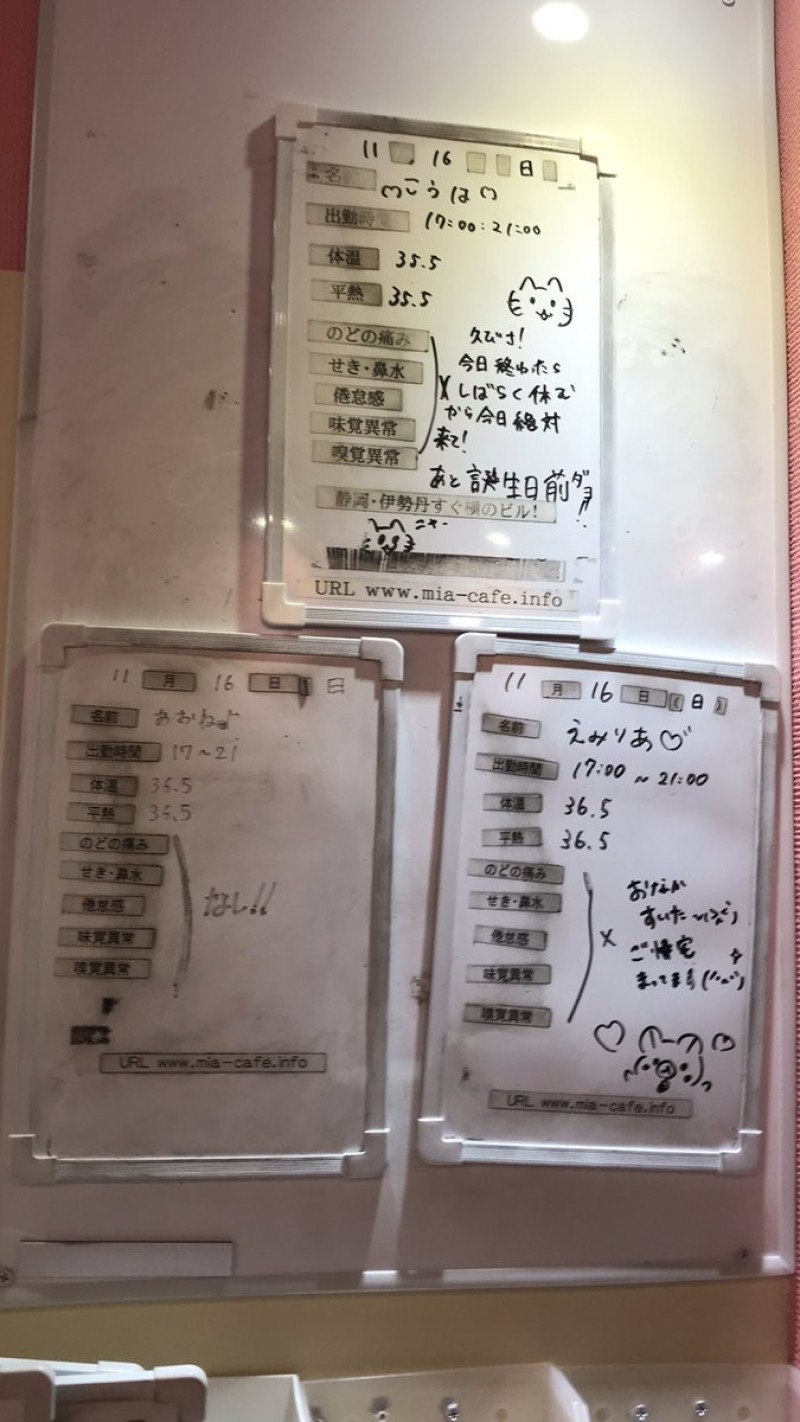 11 16 日
名前 ♡こうは♡
出勤時間 17:00:21:00
体温 35.5
平熱 35.5
のどの痛み
せき・鼻水
倦怠感
味覚異常
嗅覚異常
×
久びさ!
今日終わったら
しばらく休む
から今日絶対
来て!
あと誕生日前ダヨ!!
静岡・伊勢丹すぐ横のビル!
ニャー
URL www.mia-cafe.info
11 月 16 日 日
名前 あおね
出勤時間 17~21
体温 36.5
平熱 36.5
のどの痛み
せき・鼻水
倦怠感
味覚異常
嗅覚異常
なし!!
URL www.mia-cafe.info
11 月 16 日 (日)
名前 えみりあ♡
出勤時間 17:00 ~ 21:00
体温 36.5
平熱 36.5
のどの痛み
せき・鼻水
倦怠感
味覚異常
嗅覚異常
×
おなか
すいた~
ご帰宅
まってます
URL www.mia-cafe.info